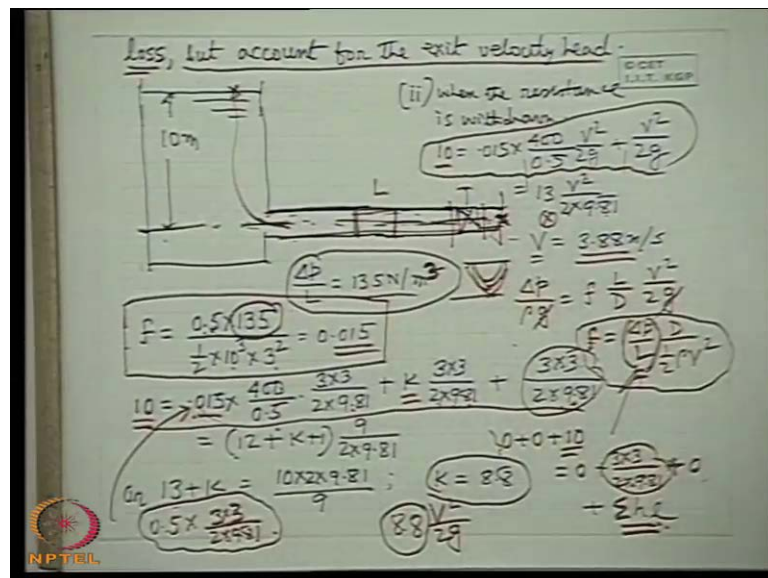 loss, but account for the exit velocity head.
© CET
I.I.T. KGP
(ii) when the resistance
is withdrawn
10 = .015 × 400/0.5 V²/2g + V²/2g
= 13 V²/2×9.81
V = 3.88 m/s
10m
L
Δp/L = 135 N/m³
Δp/ρg = f L/D V²/2g
f = 0.5×135 / ½×10³×3² = 0.015
f = Δp/L D/½ρV²
10 = .015 × 400/0.5 · 3×3/2×9.81 + K 3×3/2×9.81 + 3×3/2×9.81
= (12 + K + 1) 9/2×9.81
0 + 0 + 10
= 0 + 3×3/2×9.81 + 0
+ Σhl
or 13 + K = 10×2×9.81/9 ; K = 8.8
0.5 × 3×3/2×9.81
8.8 V²/2g
NPTEL